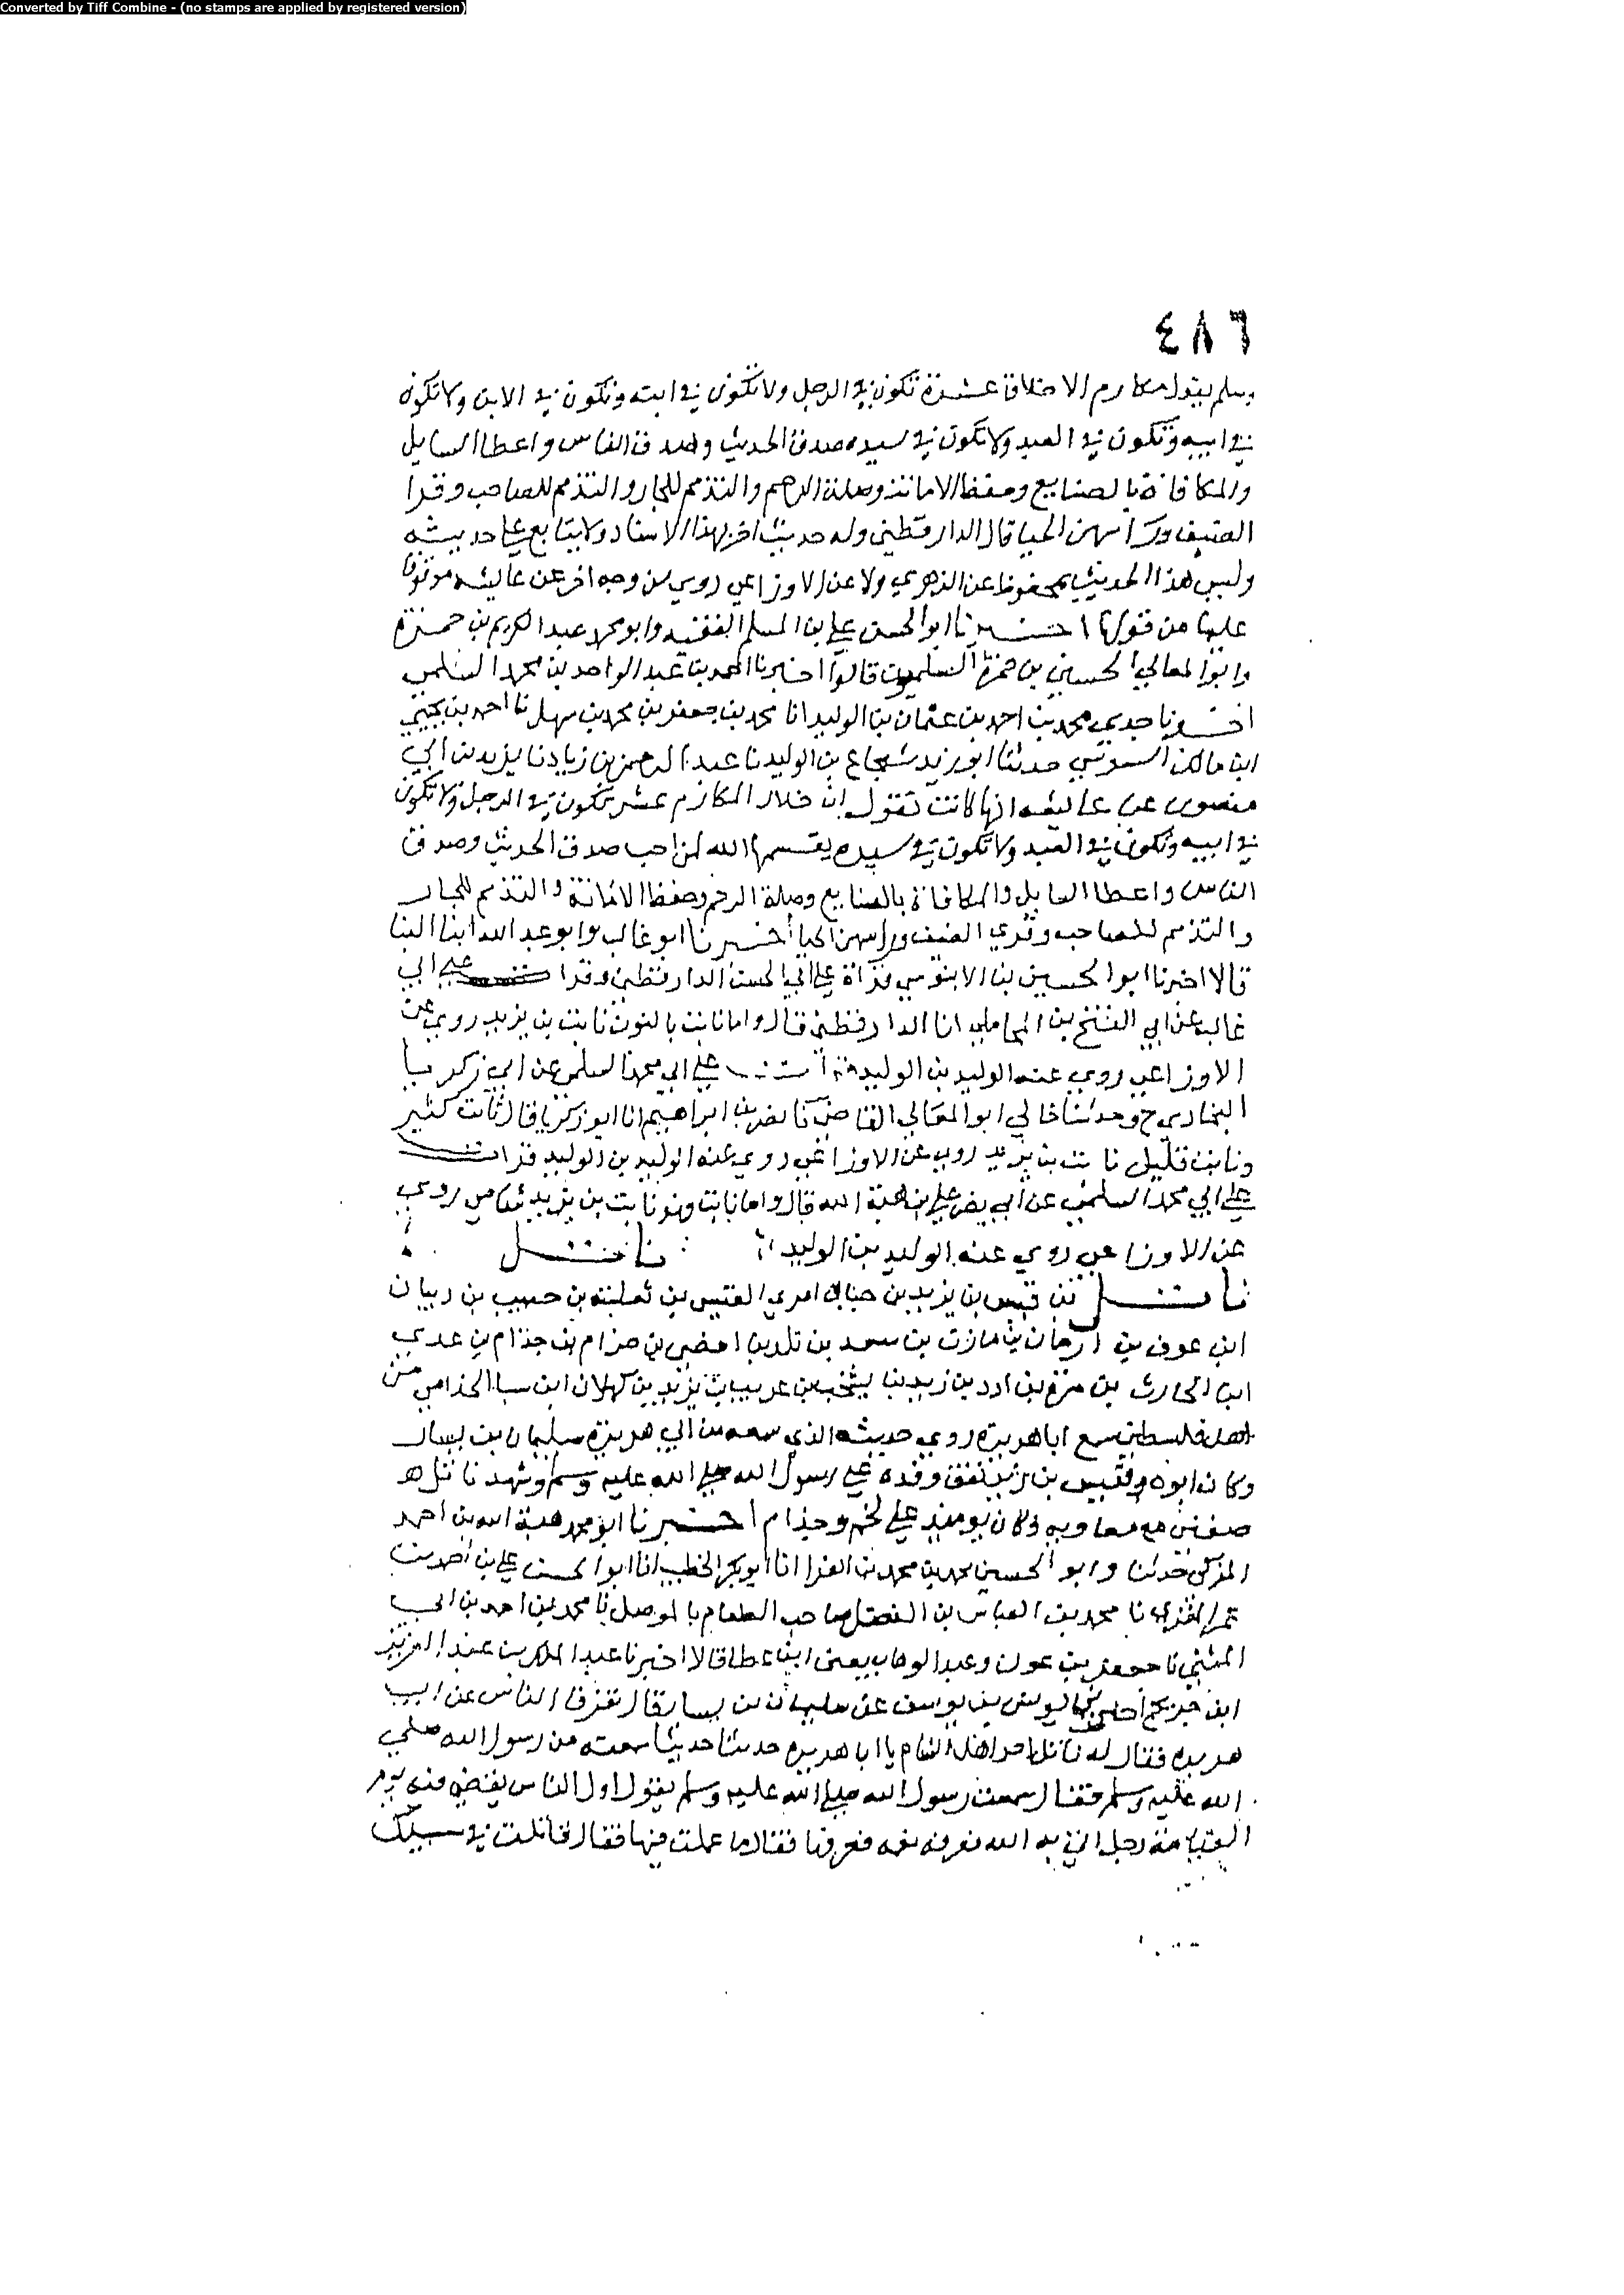 Converted by Tiff Combine - (no stamps are applied by registered version)
٤٨٦
وسلم يقول مكارم الاخلاق عشرة تكون في الرجل ولا تكون في ابنه وتكون في الابن ولا تكون
في ابيه وتكون في العبد ولا تكون في سيده صدق الحديث وصدق الناس واعطا السايل
والمكافاة بالصنايع وحفظ الامانة وصلة الرحم والتذمم للجار والتذمم للصاحب وقرا
الضيف وراسهن الحيا قال الدارقطني وله حديث اخر بهذا الاسناد ولا يتابع على حديثه
وليس هذا الحديث بمحفوظ عن الزهري ولا عن الاوزاعي روي من وجه اخر عن عايشه موقوفا
عليها من قولها اخبرنا ابو الحسن علي بن المسلم الفقيه وابو محمد عبد الكريم بن حمزة
وابو المعالي الحسين بن حمزة السلميون قالوا اخبرنا احمد بن عبد الواحد بن محمد السلمي
اخبرنا جدي محمد بن احمد بن عثمان بن الوليد انا محمد بن جعفر بن محمد بن سهل نا احمد بن يحيى
ابن مالك السوسي حدثنا ابو زيد شجاع بن الوليد نا عبد الرحمن بن زياد نا يزيد بن ابي
منصور عن عايشه انها كانت تقول ان خلال المكارم عشر تكون في الرجل ولا تكون
في ابيه وتكون في العبد ولا تكون في سيده يقسمها الله لمن احب صدق الحديث وصدق
الناس واعطا السايل والمكافاة بالصنايع وصلة الرحم وحفظ الامانة والتذمم للجار
والتذمم للصاحب وقري الضيف وراسهن الحيا اخبرنا ابو غالب وابو عبد الله ابنا البنا
قالا اخبرنا ابو الحسين بن الابنوسي قراة على ابي الحسن الدارقطني وقرات على ابي
غالب عن ابي الفتح بن المحاملي انا الدارقطني قال واما نابت بالنون نابت بن يزيد روي عن
الاوزاعي روي عنه الوليد بن الوليد قرات على ابي محمد السلمي عن ابي زكريا
البخاري ح وحدثنا خالي ابو المعالي القاضي نا نصر بن ابراهيم انا ابو زكريا قال ثابت كثير
ونابت قليل نابت بن يزيد روي عن الاوزاعي روي عنه الوليد بن الوليد قرات
على ابي محمد السلمي عن ابي نصر علي بن هبة الله قال واما نابت فهو نابت بن يزيد شامي روي
عن الاوزاعي روي عنه الوليد بن الوليد ناتل
ناتل بن قيس بن يزيد بن حيا بن امري القيس بن ثعلبة بن حبيب بن دبيان
ابن عوف بن بن مازن بن سعد بن بن افصى بن حزام بن جذام بن عدي
ابن الحارث بن مرة بن ادد بن زيد بن يشجب بن عريب بن يزيد بن كهلان ابن سبا الجذامي من
اهل فلسطين سمع ابا هريرة روي حديثه الذي سمعه من ابي هريرة سليمان بن يسار
وكان ابوه قيس بن يزيد وفده على رسول الله صلى الله عليه وسلم وشهد ناتل هذا
صفين مع معاويه وكان يوميذ على لخم وجذام اخبرنا ابو محمد هبة الله بن احمد
المزكي حدثنا وابو الحسين محمد بن محمد بن الفرا انا ابو بكر الخطيب انا ابو الحسن علي بن احمد بن
عمر المقري نا محمد بن العباس بن الفضل صاحب الطعام بالموصل نا محمد بن احمد بن ابي
المثنى نا جعفر بن عون وعبد الوهاب يعني ابن عطا قالا اخبرنا عبد الملك بن عبد العزيز
ابن جريج اخبرني يونس بن يوسف عن سليمان بن يسار قال تفرق الناس عن ابي
هريره فقال له ناتل احد اهل الشام يا ابا هريره حدثنا حديثا سمعته من رسول الله صلى
الله عليه وسلم فقال سمعت رسول الله صلى الله عليه وسلم يقول اول الناس يقضى فيه يوم
القيامة رجل اتي به الله فعرفه نعمه فعرفها فقال ما عملت فيها فقال قاتلت في سبيلك